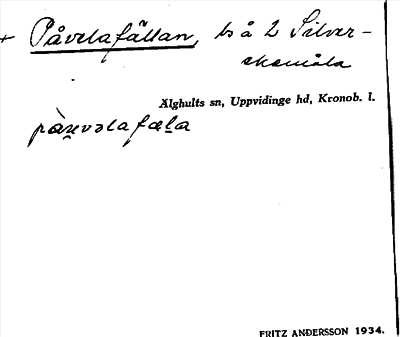 + Påvelafällan, bs å 2 Silver-
ekemåla
Älghults sn, Uppvidinge hd, Kronob. l.
FRITZ ANDERSSON 1934.